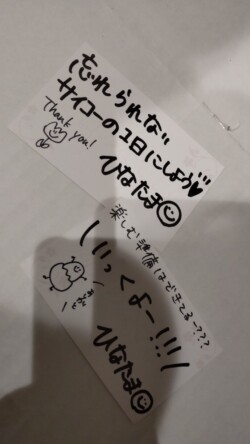 忘れられない
サイコーの1日にしよう♥
Thank you!
ひなたま☺
楽しむ準備はできてるー???
いっくよー!!!
ひなたま☺